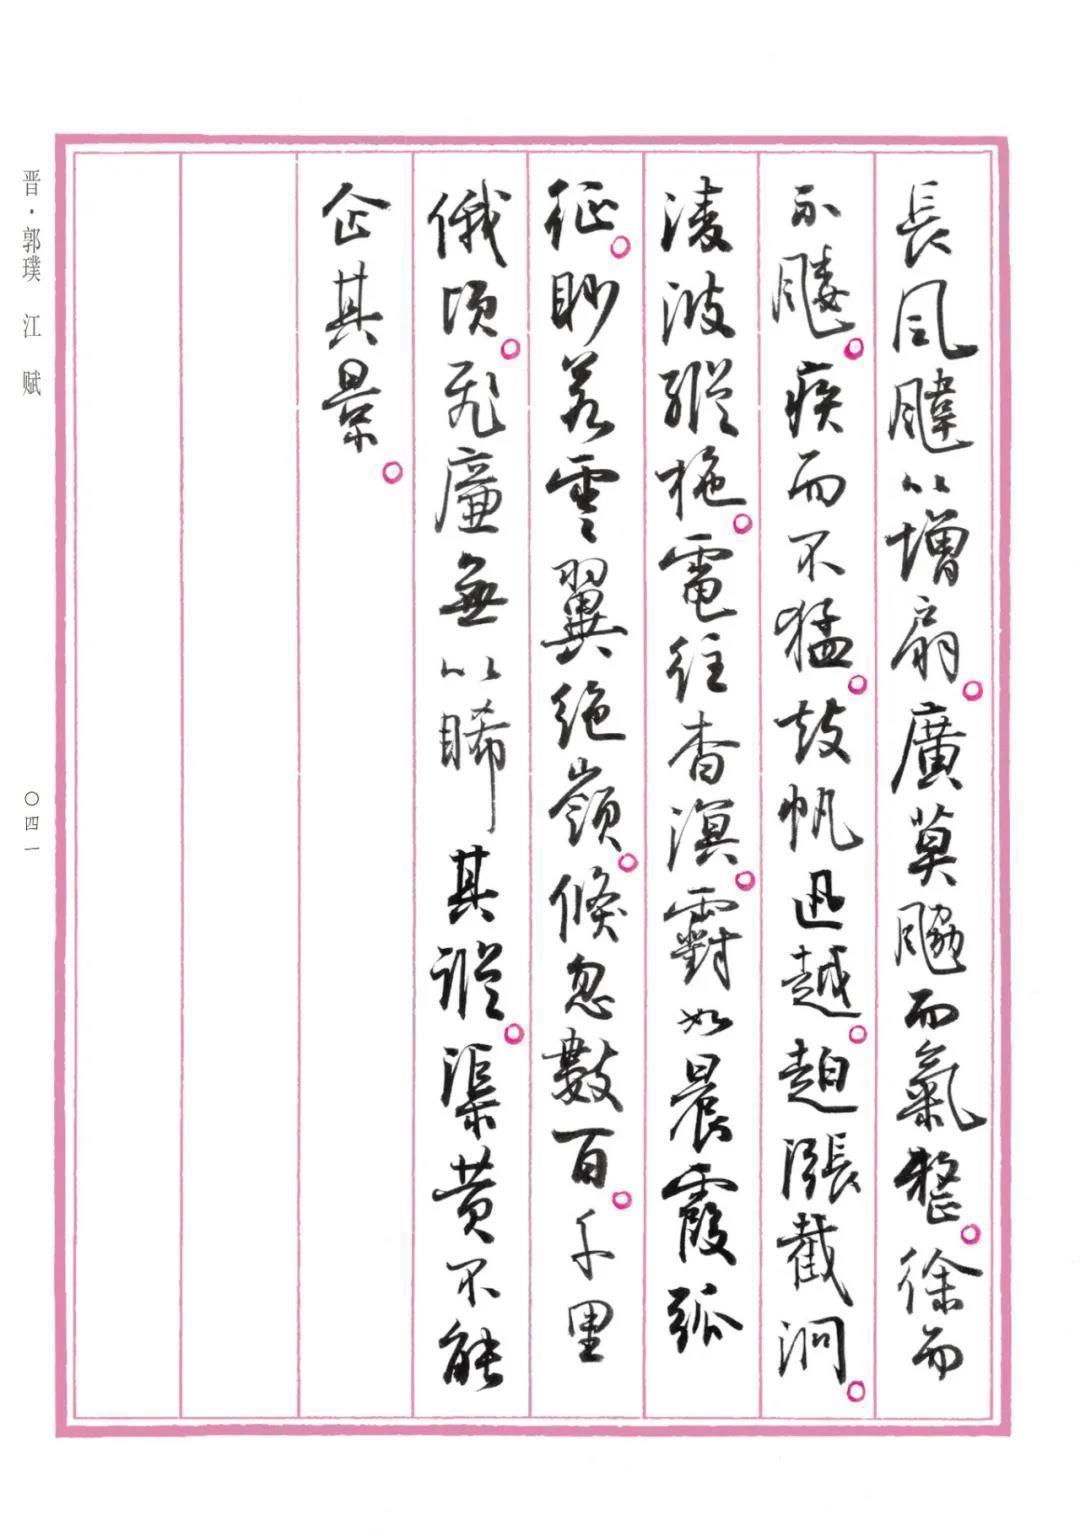 長風颹以增扇。廣莫䬅而氣整。徐而
不。疾而不猛。鼓帆迅越。漲截泂。
淩波縱柂。電往杳溟。䨴如晨霞孤
征。眇若雲翼絕嶺。倏忽數百。千里
俄頃。飛廉無以睎其蹤。渠黃不能
企其景。
晋·郭璞 江賦
〇四一